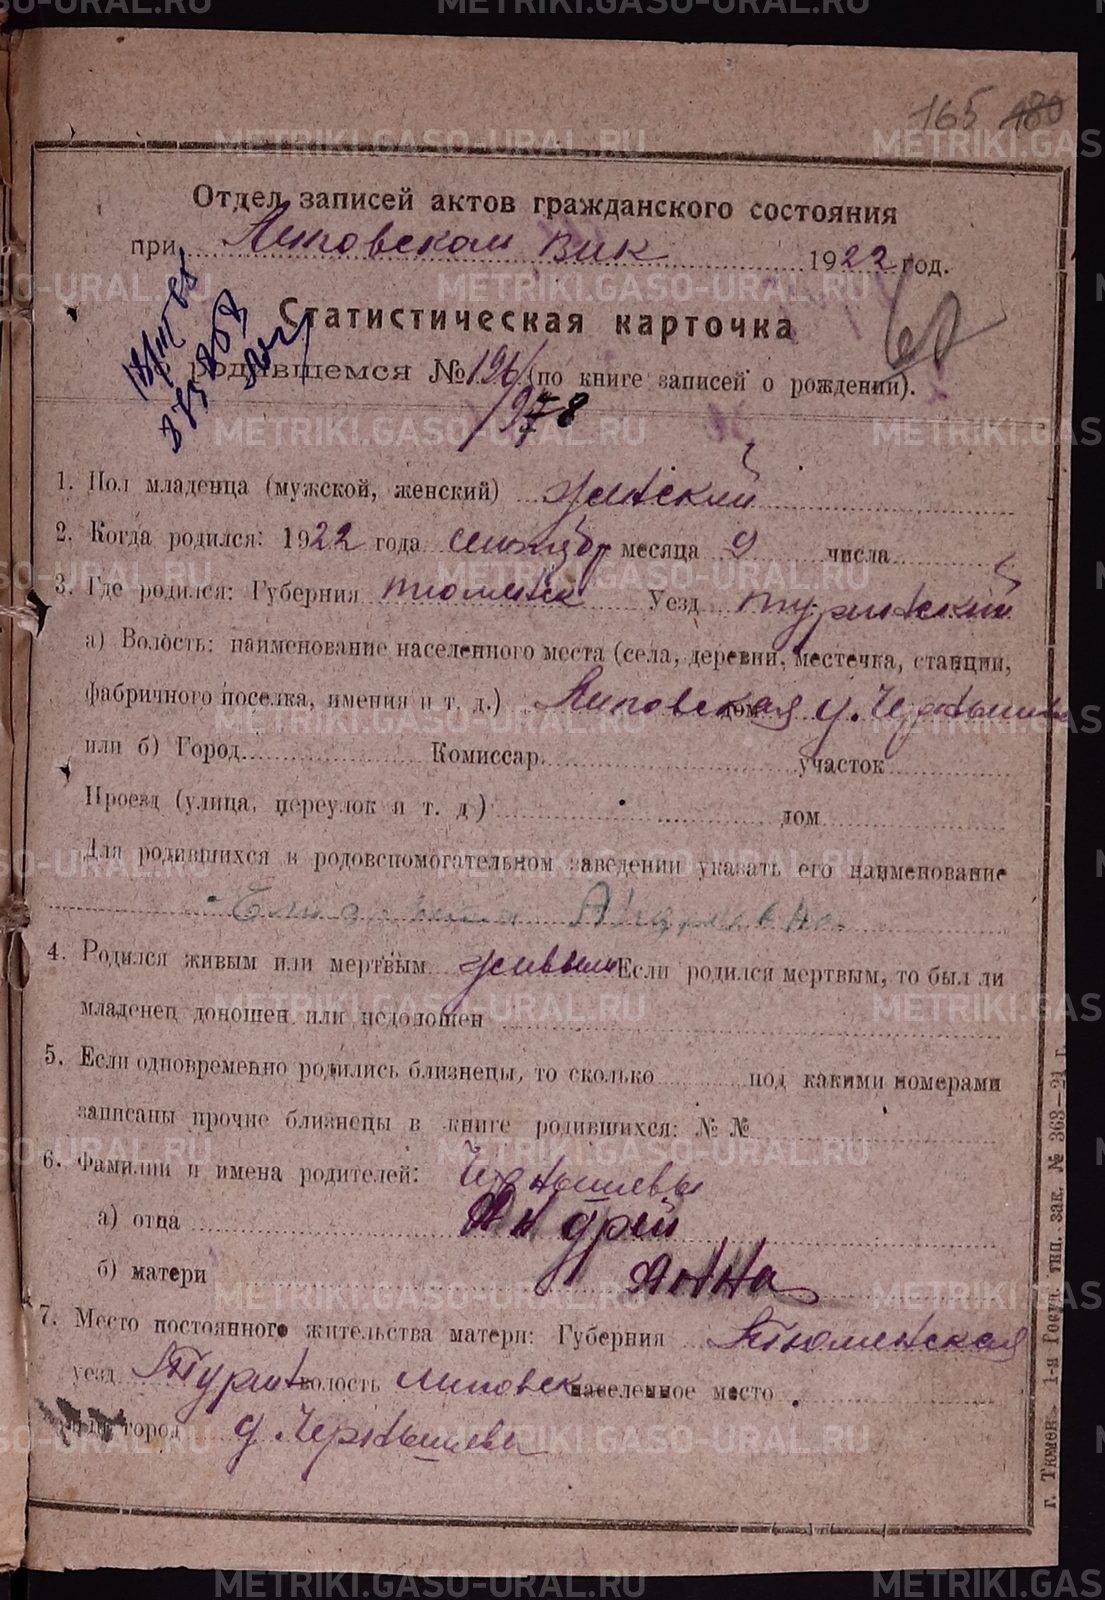 165 180
Отдел записей актов гражданского состояния
при Липовском вик 1922 год.
Статистическая карточка
родившемся № 196 (по книге записей о рождении).
1. Пол младенца (мужской, женский) женский
2. Когда родился: 1922 года сентябр месяца 9 числа
3. Где родился: Губерния тюменск Уезд туринский
а) Волость: наименование населенного места (села, деревни, местечка, станции,
фабричного поселка, имения и т. д.) Липовская дом д. Чернышева
или б) Город Комиссар. участок
Проезд (улица, переулок и т. д) дом
Для родившихся в родовспомогательном заведении указать его наименование
4. Родился живым или мертвым живым Если родился мертвым, то был ли
младенец доношен или недоношен
5. Если одновременно родились близнецы, то сколько под какими номерами
записаны прочие близнецы в книге родившихся: № №
6. Фамилии и имена родителей: Чернышевы
а) отца Андрей
б) матери Анна
7. Место постоянного жительства матери: Губерния Тюменская
уезд Турин волость липовск населенное место
или город д Чернышева
г. Тюмень 1-я Госуд. тип. зак. № 363—21 г.
METRIKI.GASO-URAL.RU